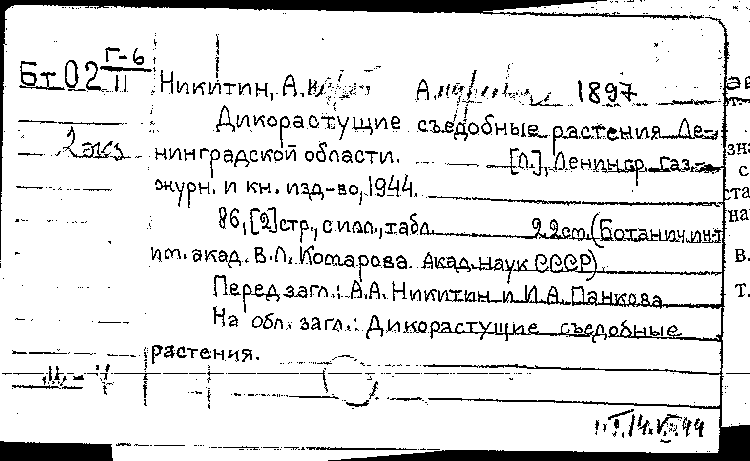 Бт 02 Г-6
II
Никитин, А. А. 1897
2 экз
Дикорастущие съедобные растения Ле-
нинградской области. [Л.], Ленингр. газ.-
журн. и кн. изд-во, 1944.
86, [2] стр., с илл., табл. 22 см. (Ботанич. ин-т
им. акад. В.Л. Комарова. Акад. наук СССР).
Перед загл.: А.А. Никитин и И.А. Панкова
На обл. загл.: Дикорастущие съедобные
растения.